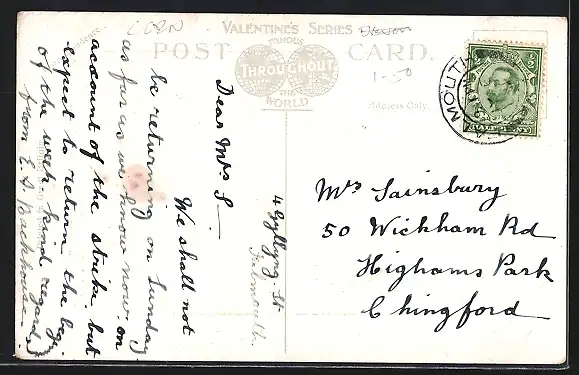 CORN
VALENTINE'S SERIES
POST CARD.
FAMOUS
THROUGHOUT
THE
WORLD
1-50
Address Only.
MOUTH
4 Gyllyng. St
Falmouth.
Dear Mrs S—
We shall not
be returning on Sunday
as far as we know now. on
account of the strike but
expect to return the beg.
of the week. kind regards
from E. A. Backhouse.
Mrs Sainsbury
50 Wickham Rd
Highams Park
Chingford